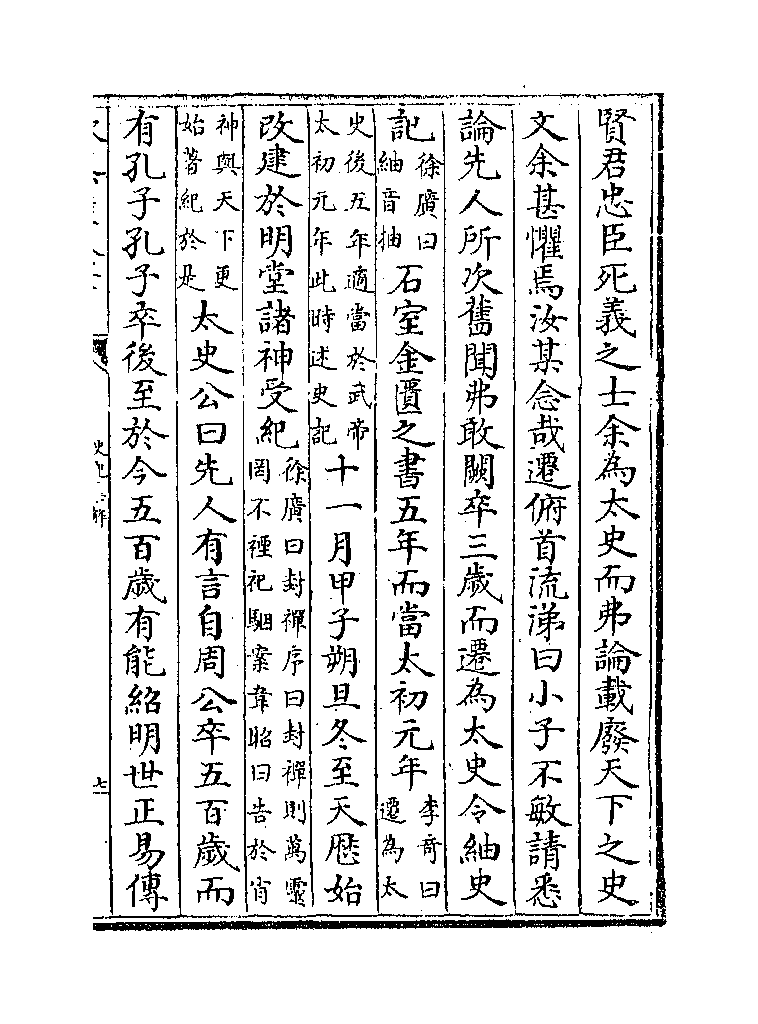 賢君忠臣死義之士余為太史而弗論載廢天下之史
文余甚懼焉汝某念哉遷俯首流涕曰小子不敏請悉
論先人所次舊聞弗敢闕卒三歲而遷為太史令紬史
記徐廣曰紬音抽石室金匱之書五年而當太初元年李奇曰遷為太
史後五年適當於武帝太初元年此時述史記十一月甲子朔旦冬至天厯始
改建於明堂諸神受紀徐廣曰封禪序曰封禪則萬靈罔不禋祀駰案韋昭曰告於百
神與天下更始著紀於是太史公曰先人有言自周公卒五百歲而
有孔子孔子卒後至於今五百歲有能紹明世正易傳
七